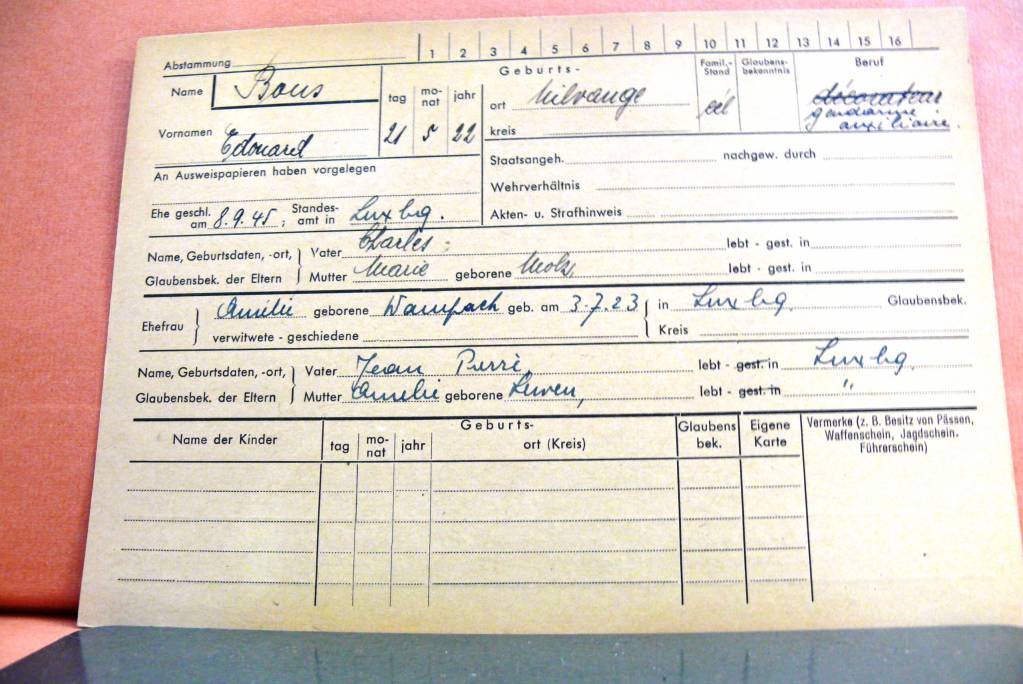 1 2 3 4 5 6 7 8 9 10 11 12 13 14 15 16
Abstammung
Name Bous
Vornamen Edouard
Geburts-
tag mo-nat jahr
21 5 22
ort Nilvange
kreis
Famil.-Stand
cél
Glaubens-bekenntnis
Beruf
décorateur
gendarme
auxiliaire.
An Ausweispapieren haben vorgelegen
Staatsangeh. nachgew. durch
Wehrverhältnis
Akten- u. Strafhinweis
Ehe geschl. am 8.9.45 ; Standes-amt in Luxbg.
Name, Geburtsdaten, -ort, Glaubensbek. der Eltern
Vater Charles lebt - gest. in
Mutter Marie geborene lebt - gest. in
Ehefrau Amélie geborene Wampach geb. am 3-7.23 in Luxbg. Glaubensbek.
verwitwete - geschiedene Kreis
Name, Geburtsdaten, -ort, Glaubensbek. der Eltern
Vater Jean Pierre, lebt - gest. in Luxbg.
Mutter Amelie geborene lebt - gest. in "
Name der Kinder
Geburts-
tag mo-nat jahr ort (Kreis)
Glaubens bek.
Eigene Karte
Vermerke (z. B. Besitz von Pässen,
Waffenschein, Jagdschein.
Führerschein)